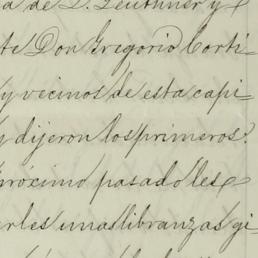 a de D. Leuthner y
te Don Gregorio Corti-
y vecinos de esta capi-
y dijeron los primeros:
próximo pasado les
arles unas libranzas gi-